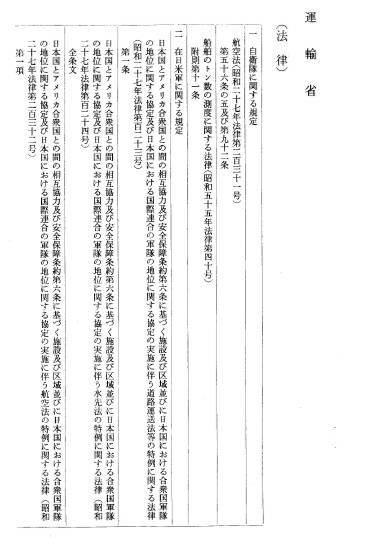 運輸省
（法律）
一　自衛隊に関する規定
航空法（昭和二十七年法律第二百三十一号）
第五十六条の五及び第九十二条
船舶のトン数の測度に関する法律（昭和五十五年法律第四十号）
附則第十一条
二　在日米軍に関する規定
日本国とアメリカ合衆国との間の相互協力及び安全保障条約第六条に基づく施設及び区域並びに日本国における合衆国軍隊
の地位に関する協定及び日本国における国際連合の軍隊の地位に関する協定の実施に伴う道路運送法等の特例に関する法律
（昭和二十七年法律第百二十三号）
第一条
日本国とアメリカ合衆国との間の相互協力及び安全保障条約第六条に基づく施設及び区域並びに日本国における合衆国軍隊
の地位に関する協定及び日本国における国際連合の軍隊の地位に関する協定の実施に伴う水先法の特例に関する法律（昭和
二十七年法律第百二十四号）
全条文
日本国とアメリカ合衆国との間の相互協力及び安全保障条約第六条に基づく施設及び区域並びに日本国における合衆国軍隊
の地位に関する協定及び日本国における国際連合の軍隊の地位に関する協定の実施に伴う航空法の特例に関する法律（昭和
二十七年法律第二百三十二号）
第一項